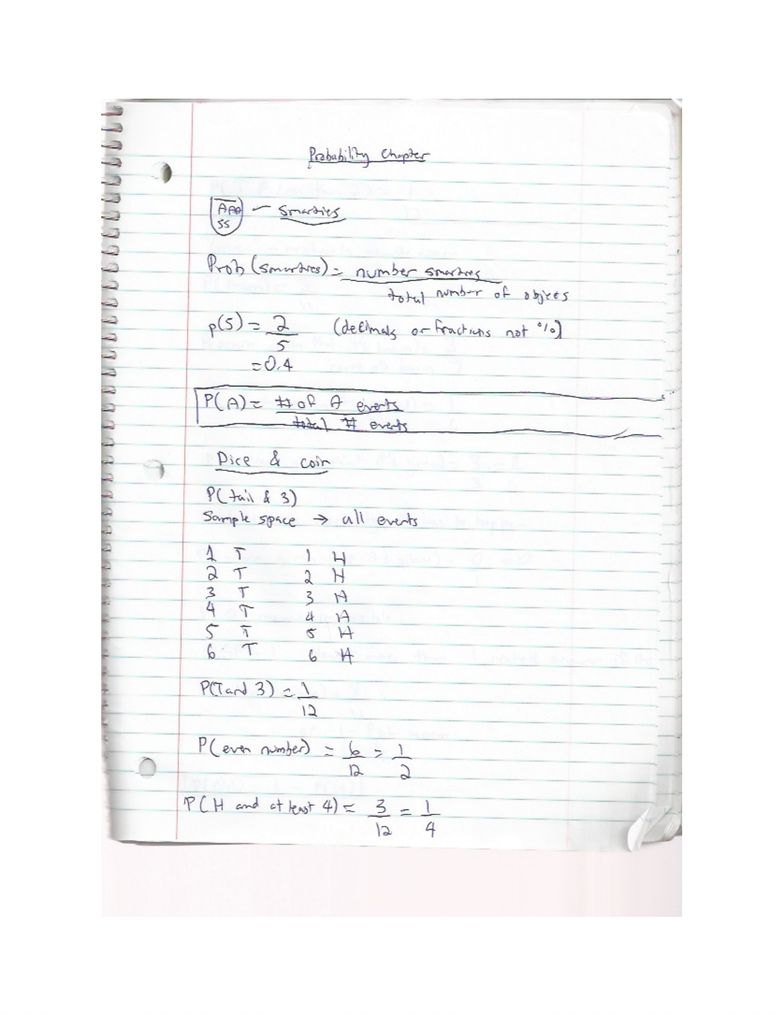 Probability Chapter
AAA - smarties
SS
Prob (smarties) = number smarties
total number of objects
p(S) = 2 (decimals or fractions not %)
5
= 0.4
P(A) = # of A events
total # events
Dice & coin
P(tail & 3)
Sample space → all events
1 T 1 H
2 T 2 H
3 T 3 H
4 T 4 H
5 T 5 H
6 T 6 H
P(T and 3) = 1
12
P(even number) = 6 = 1
12 2
P(H and at least 4) = 3 = 1
12 4